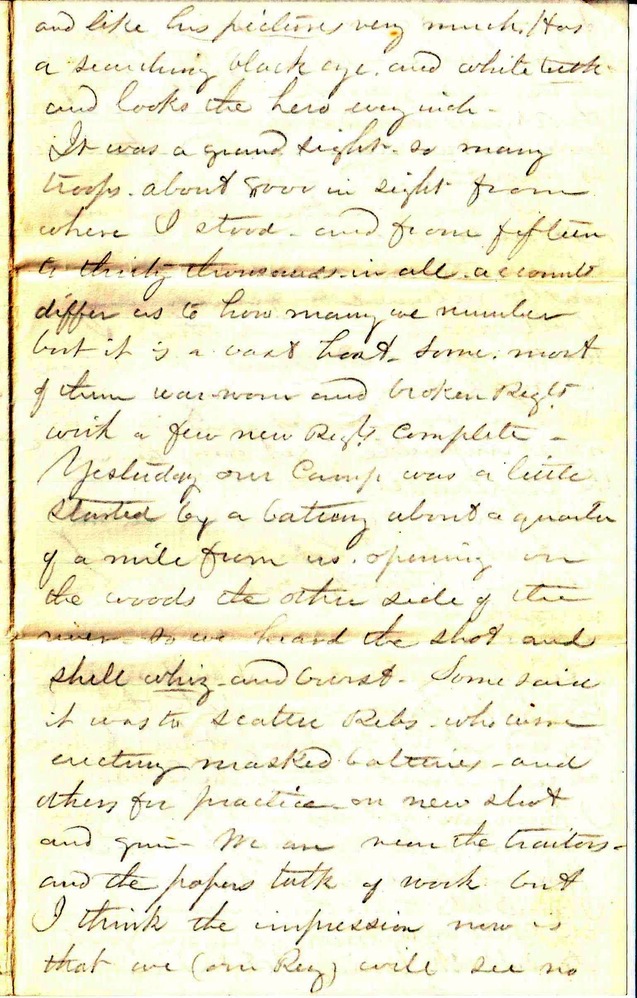 and like his pictures very much. Has
a searching black eye. and white teeth
and looks the hero every inch -
It was a grand sight - so many
troops - about 8000 in sight from
where I stood - and from fifteen
to thirty thousands in all - accounts
differ as to how many we number
but it is a vast host - Some, most
of them war-worn and broken Regts
with a few new Regts. complete -
Yesterday our Camp was a little
started by a battery about a quarter
of a mile from us. opening on
the woods the other side of the
river - so we heard the shot and
shell whiz - and burst - Some said
it was to scatter Rebs - who were
erecting masked batteries - and
others for practice on new shot
and gun - We are near the traitors -
and the papers talk of work but
I think the impression now is
that we (our Reg) will see no